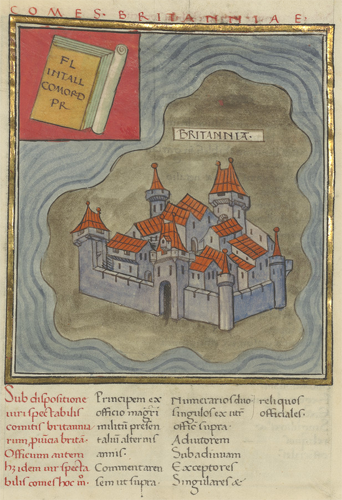 COMES · BRITANNIAE:
FL
INTALL
COMORD
PR
BRITANNIA·
Sub dispositione
uiri spectabilis
comitis britannia
rum, puicia britā·
Officium autem
hʒ idem uir specta
bilis comes hoc m̄·
Principem ex
officio magr̄i
militū presen
taliū alternis
annis·
Commentarien
sem ut supra·
Numerarios duo
singulos ex utr̄
offic supra·
Adiutorem
Subadiuuam
Exceptores
Singulares &
reliquos
officiales·